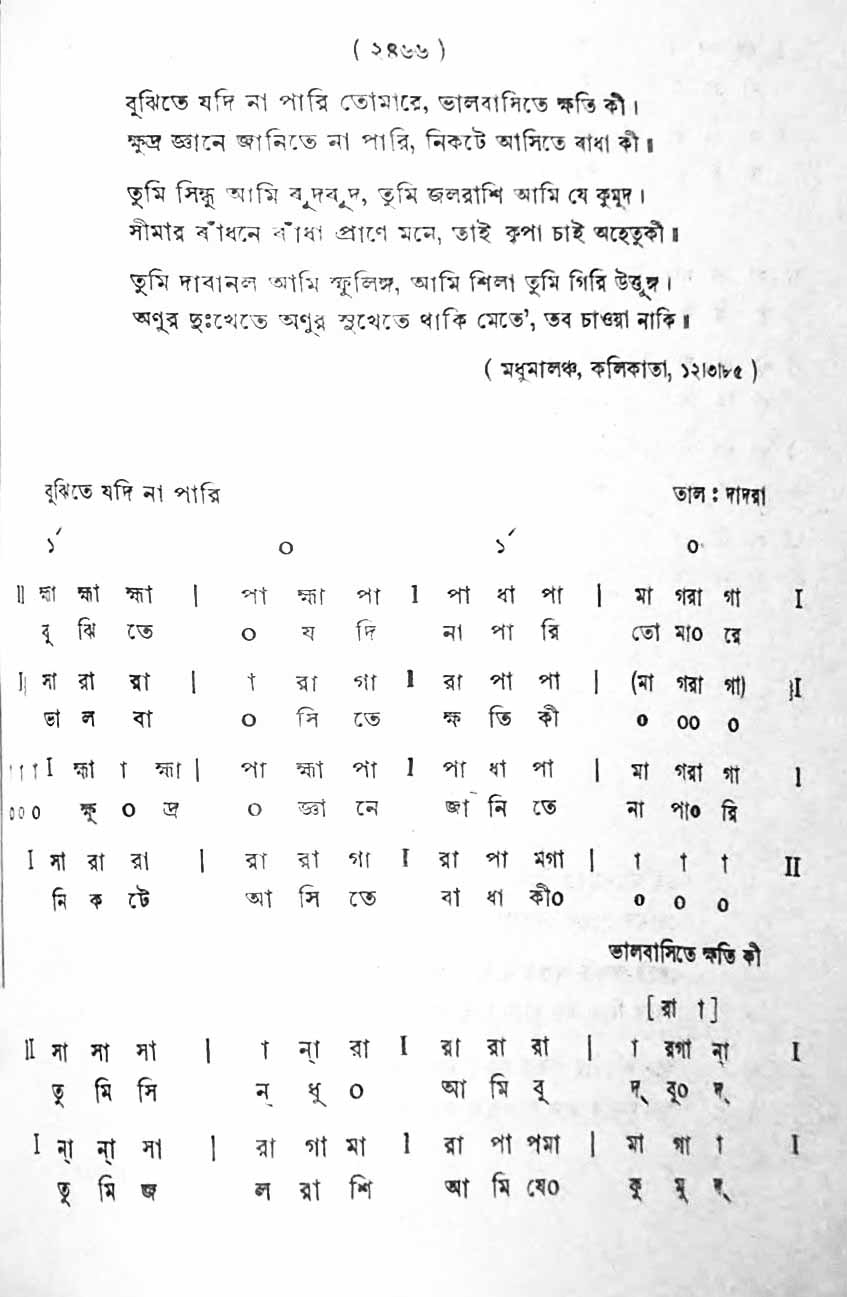 ( ২৪৬৬ )
বুঝিতে যদি না পারি তোমারে, ভালবাসিতে ক্ষতি কী।
ক্ষুদ্র জ্ঞানে জানিতে না পারি, নিকটে আসিতে বাধা কী॥
তুমি সিন্ধু আমি বুদবুদ, তুমি জলরাশি আমি যে কুমুদ।
সীমার বাঁধনে বাঁধা প্রাণে মনে, তাই কৃপা চাই অহেতুকী॥
তুমি দাবানল আমি স্ফুলিঙ্গ, আমি শিলা তুমি গিরি উত্তুঙ্গ।
অণুর দুঃখেতে অণুর সুখেতে থাকি মেতে', তব চাওয়া নাকি॥
( মধুমালঞ্চ, কলিকাতা, ১২।৩।৮৫ )
বুঝিতে যদি না পারি তাল : দাদরা
১´ ০ ১´ ০
॥ হ্মা হ্মা হ্মা | পা হ্মা পা I পা ধা পা | মা গরা গা I
বু ঝি তে ০ য দি না পা রি তো মা০ রে
I{ সা রা রা | া রা গা I রা পা পা | (মা গরা গা) }I
ভা ল বা ০ সি তে ক্ষ তি কী ০ ০০ ০
া া া I হ্মা া হ্মা | পা হ্মা পা I পা ধা পা | মা গরা গা I
০০০ ক্ষু ০ দ্র ০ জ্ঞা নে জা নি তে না পা০ রি
I সা রা রা | রা রা গা I রা পা মগা | া া া II
নি ক টে আ সি তে বা ধা কী০ ০ ০ ০
ভালবাসিতে ক্ষতি কী
[ রা া ]
II সা সা সা | া ন্া রা I রা রা রা | া রগা ন্া I
তু মি সি ন্ ধু ০ আ মি বু দ্ বু০ দ্
I ন্া ন্া সা | রা গা মা I রা পা পমা | মা গা া I
তু মি জ ল রা শি আ মি যে০ কু মু দ্